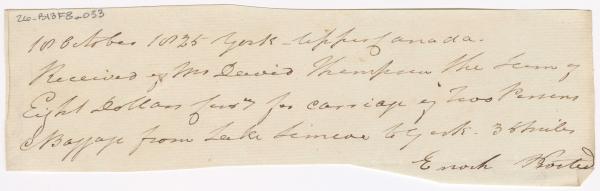 26-B13F8-033
18 October 1825 York - Upper Canada.
Received of Mr David Thompson the Sum of
Eight Dollars for carriage of Two Persons
& Baggage from Lake Simcoe to York. 38 miles
Enoch